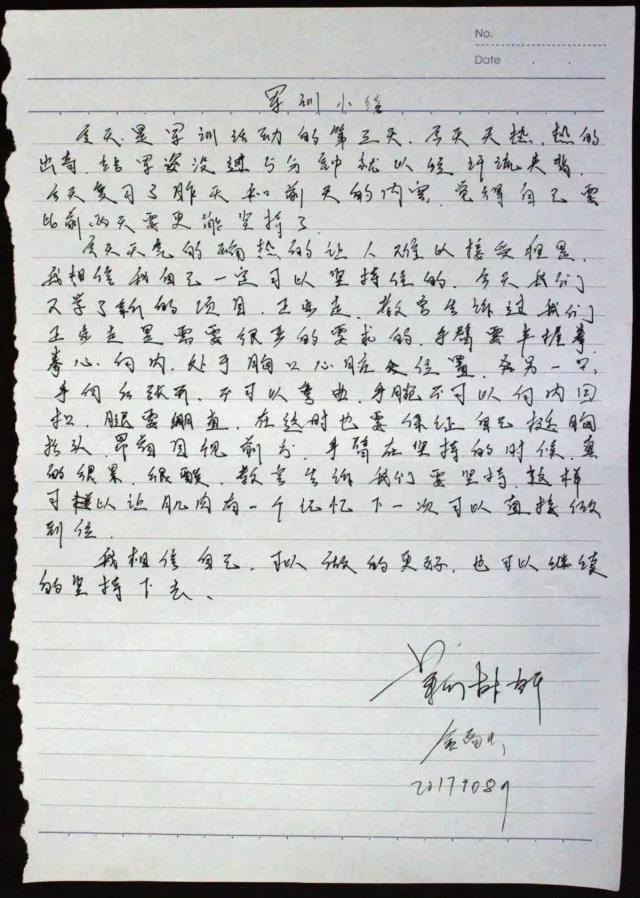 No.
Date
军训小结
今天是军训活动的第三天,今天天热,热的
出奇,站军姿没过5分钟就以经汗流夹背,
今天复习了昨天和前天的内容,觉得自己要
比前两天要更能坚持了
今天天气的确热的让人难以接受但是,
我相信我自己一定可以坚持住的,今天我们
又学了新的项目,正步走,教官告诉过我们
正步走是需要很多的要求的,手臂要半握拳,
拳心向内,处于胸口心脏处位置,而另一只
手向后张开,不可以弯曲,手腕不可以向内回
扣,腿要绷直,在这时也要保证自己挺胸
抬头,昂首目视前方,手臂在坚持的时候,真
的很累,很酸,教官告诉我们要坚持,这样
可以让肌肉有一个记忆下一次可以直接做
到位。
我相信自己,可以做的更好,也可以继续
的坚持下去、